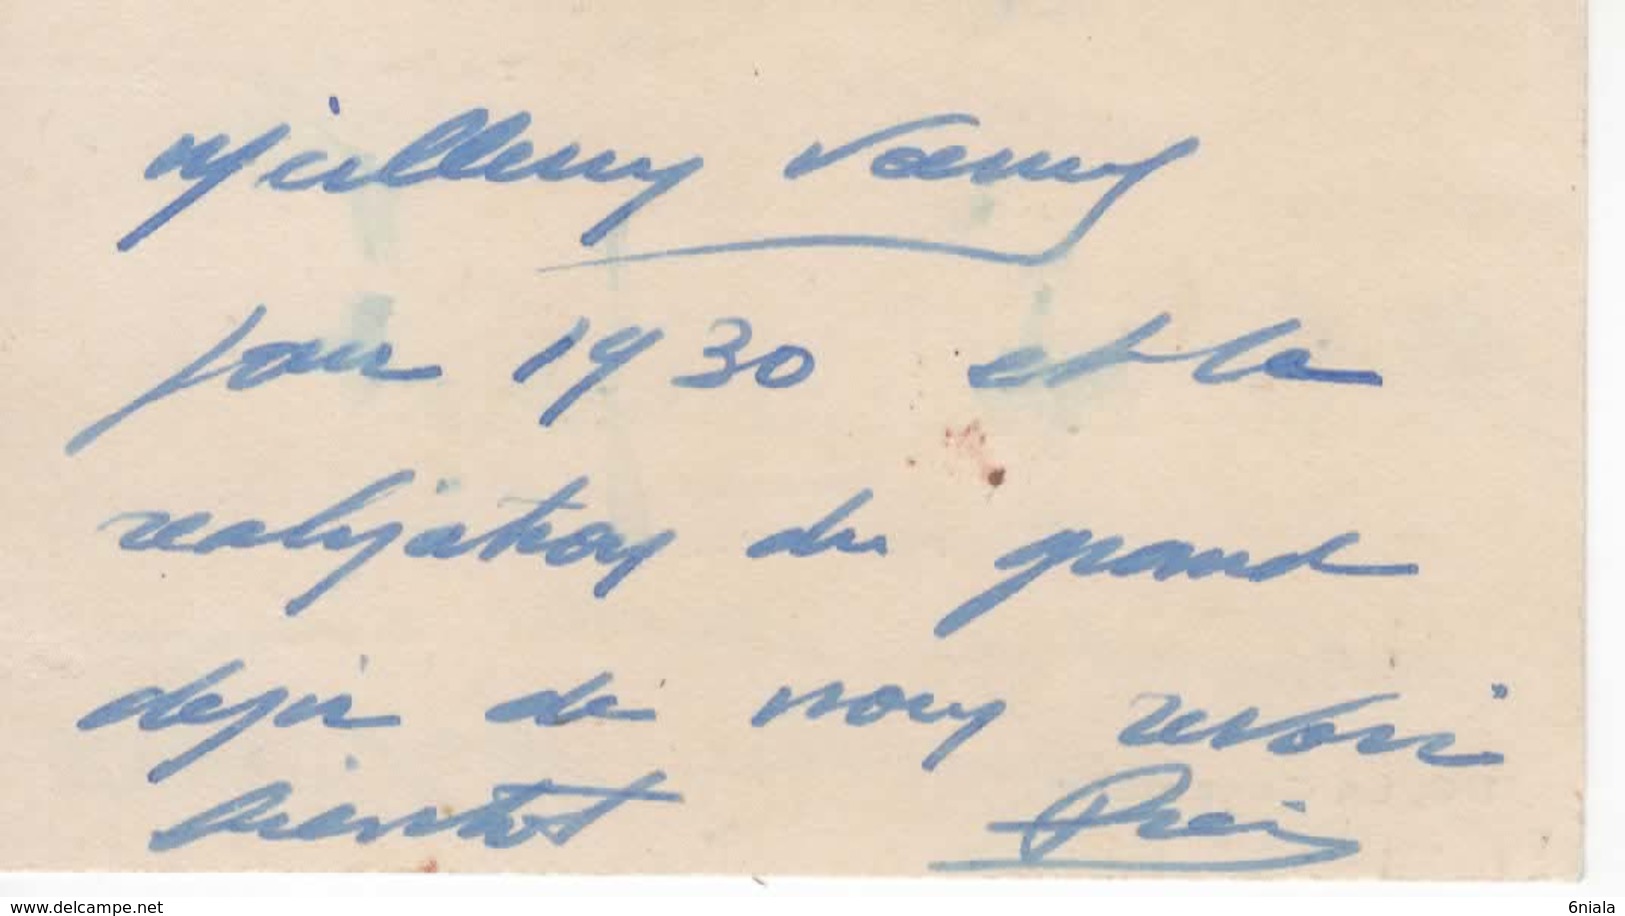 Meilleurs vœux
pour 1930 et la
realisation du grand
desir de nous revoir
bientot
www.delcampe.net
6niala